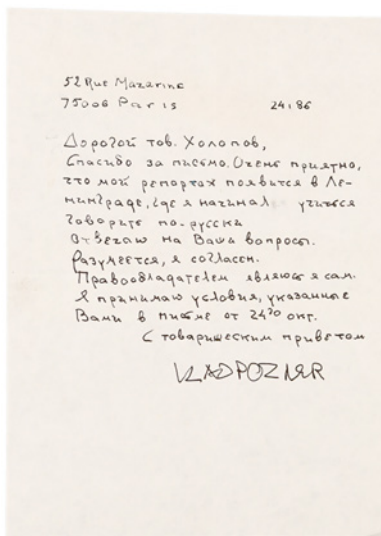 52 Rue Mazarine
75006 Paris 24 i 86
Дорогой тов. Холопов,
Спасибо за письмо. Очень приятно,
что мой репортаж появится в Ле-
нинграде, где я начинал учиться
говорить по-русски
Отвечаю на Ваши вопросы.
Разумеется, я согласен.
Правообладателем являюсь я сам.
Я принимаю условия, указанные
Вами в письме от 24го окт.
С товарищеским приветом
VLADPOZNER